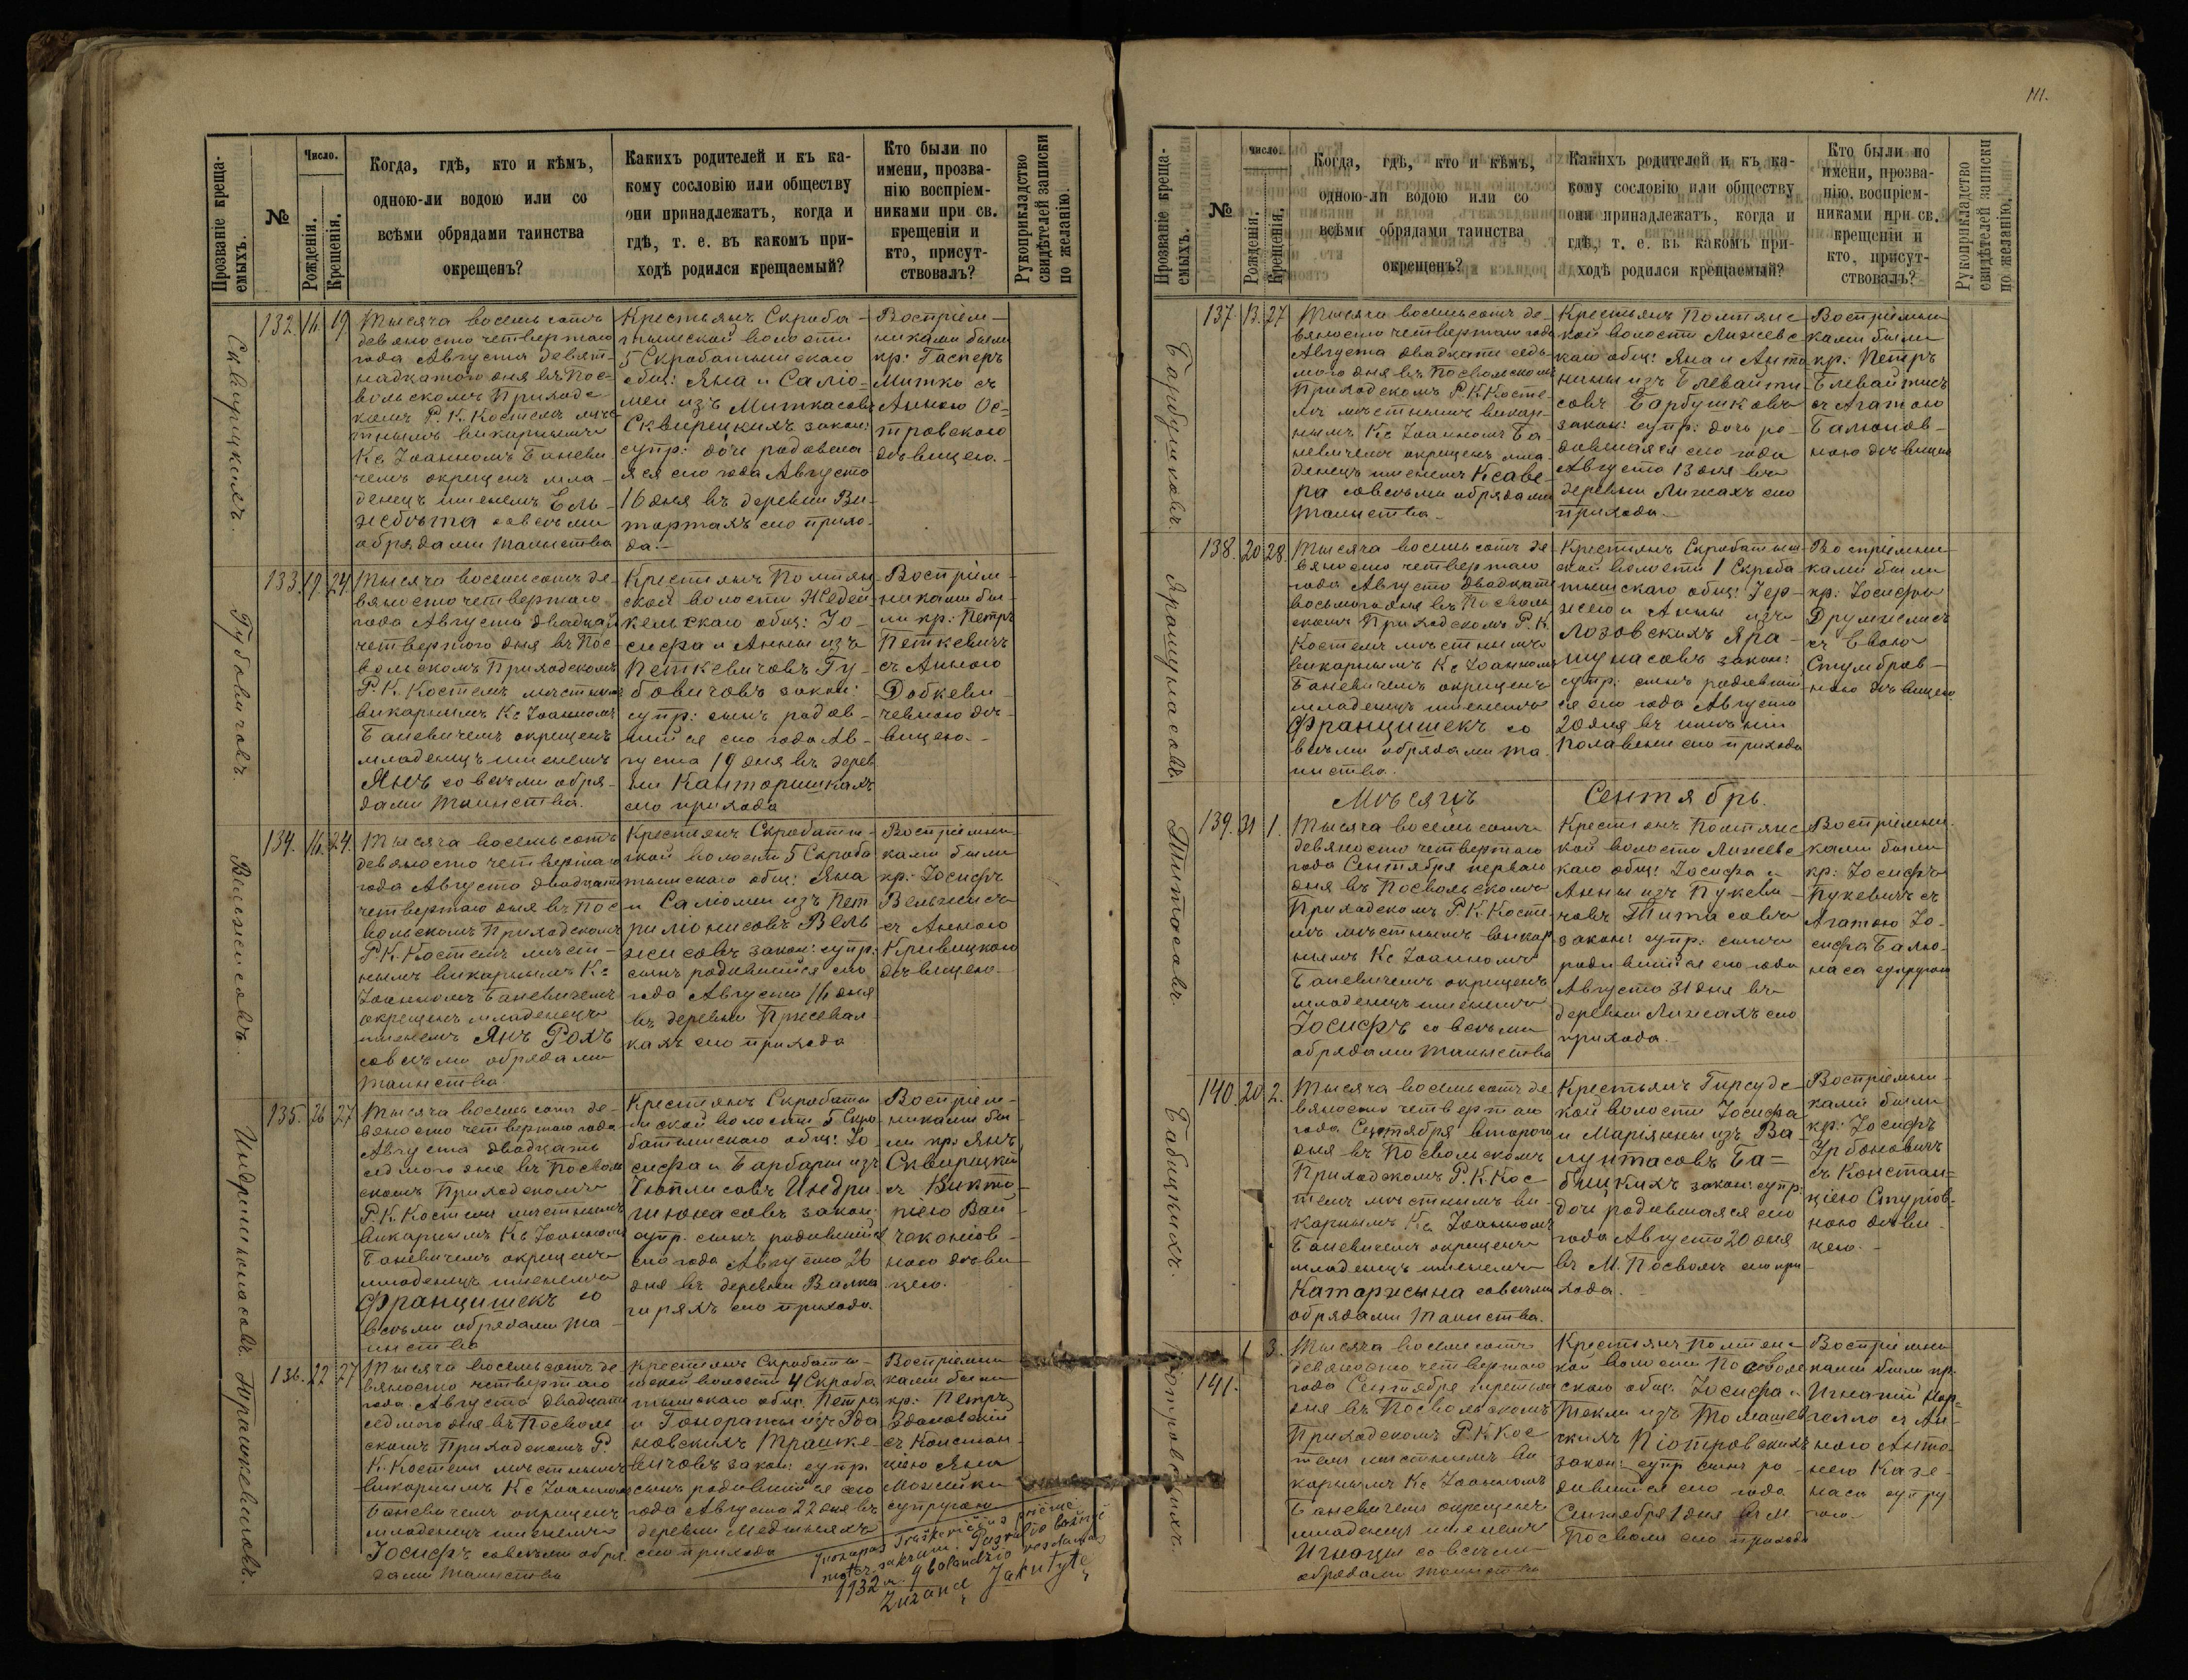 Прозваніе креща-
емыхъ.
№
Число.
Рожденія.
Крещенія.
Когда, гдѣ, кто и кѣмъ,
одною-ли водою или со
всѣми обрядами таинства
окрещенъ?
Какихъ родителей и къ ка-
кому сословію или обществу
они принадлежатъ, когда и
гдѣ, т. е. въ какомъ при-
ходѣ родился крещаемый?
Кто были по
имени, прозва-
нію воспріем-
никами при св.
крещеніи и
кто, присут-
ствовалъ?
Рукоприкладство
свидѣтелей записки
по желанію.
Сквирецкихъ.
132. 16. 19.
Тысяча восемь сотъ
девяносто четвертаго
года Августа девят-
надцатого дня въ Пос-
вольскомъ Приходс-
комъ Р. К. Костелѣ мѣс-
тнымъ викарнымъ
Кс Іоанномъ Баневи
чемъ окрещенъ мла-
денецъ именемъ Ель-
жбѣта со всѣми
обрядами таинства
Крестьянъ Скроба-
тышской волости
5 Скробатышскаго
общ: Яна и Саліо-
меи изъ Миткасовъ
Сквирецкихъ закон:
супр: дочь родивша
яся сего года Августа
16 дня въ деревни Ви-
тортахъ сего прихо-
да.-
Воспріем-
никами были
кр: Гасперъ
Митко съ
Анною Ос-
тровскою
дѣвицею.-
Губовичовъ.
133. 19. 24.
Тысяча восемь сотъ де-
вяносто четвертаго
года Августа двадцать
четвертого дня въ Пос-
вольскомъ Приходскомъ
Р. К. Костелѣ мѣстнымъ
викарнымъ Кс Іоанномъ
Баневичемъ окрещенъ
младенецъ именемъ
Янъ со всѣми обря-
дами таинства.
Крестьянъ Помпян
ской волости Недей-
кельскаго общ: Іо-
сифа и Анны изъ
Петкевичовъ Гу-
бовичовъ закон:
супр: сынъ родив-
шійся сего года Ав-
густа 19 дня въ дерев
ни Канторишкахъ
сего прихода
Воспріем-
никами бы-
ли кр: Петръ
Петкевичъ
съ Анною
Добкеви-
чевною дѣ-
вицею.-
Вельжисовъ.
134. 16. 24.
Тысяча восемь сотъ
девяносто четвертаго
года Августа двадцать
четвертаго дня въ Пос
вольскомъ Приходскомъ
Р. К. Костелѣ мѣст-
нымъ викарнымъ Кс
Іоанномъ Баневичемъ
окрещенъ младенецъ
именемъ Янъ Рохъ
со всѣми обрядами
таинства.
Крестьянъ Скробаты-
шской волости 5 Скроба
тышскаго общ: Яна
и Саліомеи изъ Пет
риліонисовъ Вель
жисовъ закон: супр:
сынъ родившійся сего
года Августа 16 дня
въ деревни Пржевал-
кахъ сего прихода
Воспріемни-
ками были
кр: Іосифъ
Вельжисъ
съ Анною
Кривицкою
дѣвицею.-
Индрешюнасовъ.
135. 26 27
Тысяча восемь сотъ де-
вяносто четвертаго года
Августа двадцать
седмого дня въ Посволь
скомъ Приходскомъ
Р. К. Костелѣ мѣстнымъ
викарнымъ Кс Іоанномъ
Баневичемъ окрещенъ
младенецъ именемъ
Францишекъ со
всѣми обрядами та-
инства
Крестьянъ Скробаты
шской волости 5 Скро
батышскаго общ: Іо
сифа и Барбары изъ
Індри-
шюнасовъ закон:
супр: сынъ родившійся
сего года Августа 26
дня въ деревни Валка
гиряхъ сего прихода.
Воспріем-
никами бы-
ли кр: Янъ
Сквирецкій
съ Викто
ріею Вай
дѣви
цею.-
Трашкевичовъ.
136. 22 27
Тысяча восемь сотъ де
вяносто четвертаго
года Августа двадцать
седмого дня въ Посволь
скомъ Приходскомъ Р.
К. Костелѣ мѣстнымъ
викарнымъ Кс Іоанномъ
Баневичемъ окрещенъ
младенецъ именемъ
Іосифъ со всѣми обря-
дами таинства
Крестьянъ Скробаты-
шской волости 4 Скроба
тышскаго общ. Петра
и Гонораты изъ Зда
новскихъ Трашке-
вичовъ закон: супр.
сынъ родившійся сего
года Августа 22 дня въ
деревни
сего прихода
Воспріемни
ками были
кр: Петръ
Здановскій
съ Констан-
ціею Яна
Можейки
супругою
Juozapas Traškevičius priėmė
moter. sakram. Pasvalio bažnyč
1932 m. 9 balandžio vestuvės
Zuzana Jakutytė
111.
Прозваніе креща-
емыхъ.
№
число.
Рожденія.
Крещенія.
Когда, гдѣ, кто и кѣмъ,
одною-ли водою или со
всѣми обрядами таинства
окрещенъ?
Какихъ родителей и къ ка-
кому сословію или обществу
они принадлежатъ, когда и
гдѣ, т. е. въ какомъ при-
ходѣ родился крещаемый?
Кто были по
имени, прозва-
нію, воспріем-
никами при св.
крещеніи и
кто, присут-
ствовалъ?
Рукоприкладство
свидѣтелей записки
по желанію.
Барбушковъ.
137. 13. 27
Тысяча восемь сотъ де-
вяносто четвертаго года
Августа двадцать седь
мого дня въ Посвольскомъ
Приходскомъ Р. К. Косте-
лѣ мѣстнымъ викар-
нымъ Кс Іоанномъ Ба-
невичемъ окрещенъ мла-
денецъ именемъ Ксаве-
ра со всѣми обрядами
таинства.-
Крестьянъ Помпянс
кой волости Лижевс
каго общ: Яна и Анто
нины изъ Блевайти-
совъ Барбушковъ
закон: супр: дочь ро-
дившаяся сего года
Августа 13 дня въ
деревни Лижахъ сего
прихода.-
Воспріемни
ками были
кр: Петръ
Блевайтисъ
съ Агатою
Балюнов-
ною дѣвицею
138. 20 28.
Тысяча восемь сотъ де-
вяносто четвертаго
года Августа двадцать
восьмого дня въ Посволь
скомъ Приходскомъ Р. К.
Костелѣ мѣстнымъ
викарнымъ Кс Іоанномъ
Баневичемъ окрещенъ
младенецъ именемъ
Францишекъ со
всѣми обрядами та-
инства.
Крестьянъ Скробатыш
ской волости 1 Скроба
тышскаго общ: Іер-
жего и Анны изъ
Лозовскихъ Яра-
шунасовъ закон:
супр: сынъ родивший
ся сего года Августа
20 дня въ имѣніи
сего прихода
Воспріемни-
ками были
кр: Іосифъ
съ Евою
Стумбров-
ною дѣвицею
Мѣсяцъ Сентябрь.
Титасовъ.
139. 31 1.
Тысяча восемь сотъ
девяносто четвертаго
года Сентября перваго
дня въ Посвольскомъ
Приходскомъ Р. К. Косте
лѣ мѣстнымъ викар
нымъ Кс Іоанномъ
Баневичемъ окрещенъ
младенецъ именемъ
Іосифъ со всѣми
обрядами таинства
Крестьянъ Помпянс
кой волости Лижевс
каго общ: Іосифа и
Анны изъ Пукеви-
човъ Титасовъ
закон: супр: сынъ
родившійся сего года
Августа 31 дня въ
деревни Лижахъ сего
прихода.-
Воспріемни-
ками были
кр: Іосифъ
Пукевичъ съ
Агатою Іо-
сифа Балю-
наса супругою
Бабицкихъ.
140. 20. 2.
Тысяча восемь сотъ де
вяносто четвертаго
года Сентября второго
дня въ Посвольскомъ
Приходскомъ Р. К. Кос
телѣ мѣстнымъ ви
карнымъ Кс Іоанномъ
Баневичемъ окрещенъ
младенецъ именемъ
Катаржына со всѣми
обрядами таинства.
Крестьянъ Гирсудс-
кой волости Іосифа
и Маріянны изъ Ва-
лунтасовъ Ба=
бицкихъ закон: супр:
дочь родившаяся сего
года Августа 20 дня
въ М. Посволѣ сего при
хода.-
Воспріемни-
ками были
кр: Іосифъ
Урбоновичъ
съ Констан=
ціею
ною дѣви-
цею.-
Піотровскихъ.
141. 1 3.
Тысяча восемь сотъ
девяносто четвертаго
года Сентября третьяго
дня въ Посвольскомъ
Приходскомъ Р. К. Кос
телѣ мѣстнымъ ви
карнымъ Кс Іоанномъ
Баневичемъ окрещенъ
младенецъ именемъ
Игнацы со всѣми
обрядами таинства
Крестьянъ Помпянс
кой волости Посволь
скаго общ: Іосифа и
Теклы изъ Томашев
скихъ Піотровскихъ
закон: супр сынъ ро-
дившійся сего года
Сентября 1 дня въ м.
Посволѣ сего прихода
Воспріемни
ками были кр.
Игнатій Нор=
гелло съ Ан-
ною Анто-
него Казе-
наса супру
гою.-